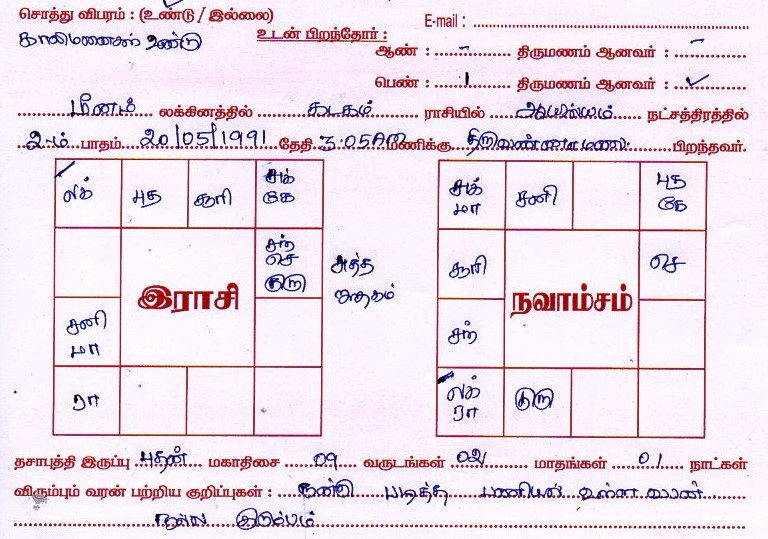 சொத்து விபரம் : (உண்டு / இல்லை)
E-mail :
காலிமனைகள் உண்டு
உடன் பிறந்தோர் :
ஆண் : – திருமணம் ஆனவர் : –
பெண் : 1 திருமணம் ஆனவர் : ✓
மீனம் லக்கினத்தில் கடகம் ராசியில் ஆயில்யம் நட்சத்திரத்தில்
2-ம் பாதம் 20/05/1991 தேதி 3:05AM மணிக்கு திருவண்ணாமலை பிறந்தவர்.
லக் புத சூரி சுக் கே
சந் செ குரு
சனி மா
ரா
இராசி
சுத்த ஜாதகம்
சுக் மா சனி புத கே
சூரி செ
சந்
லக் ரா குரு
நவாம்சம்
தசாபுத்தி இருப்பு புதன் மகாதிசை 09 வருடங்கள் 02 மாதங்கள் 01 நாட்கள்
விரும்பும் வரன் பற்றிய குறிப்புகள் : நன்கு படித்த பணியில் உள்ள வரன்
நல்ல குடும்பம்